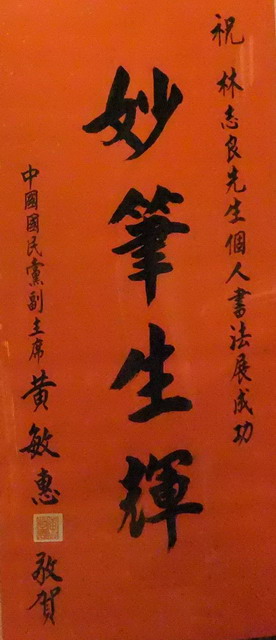 祝 林志良先生個人書法展成功
妙筆生輝
中國國民黨副主席 黄敏惠 敬賀